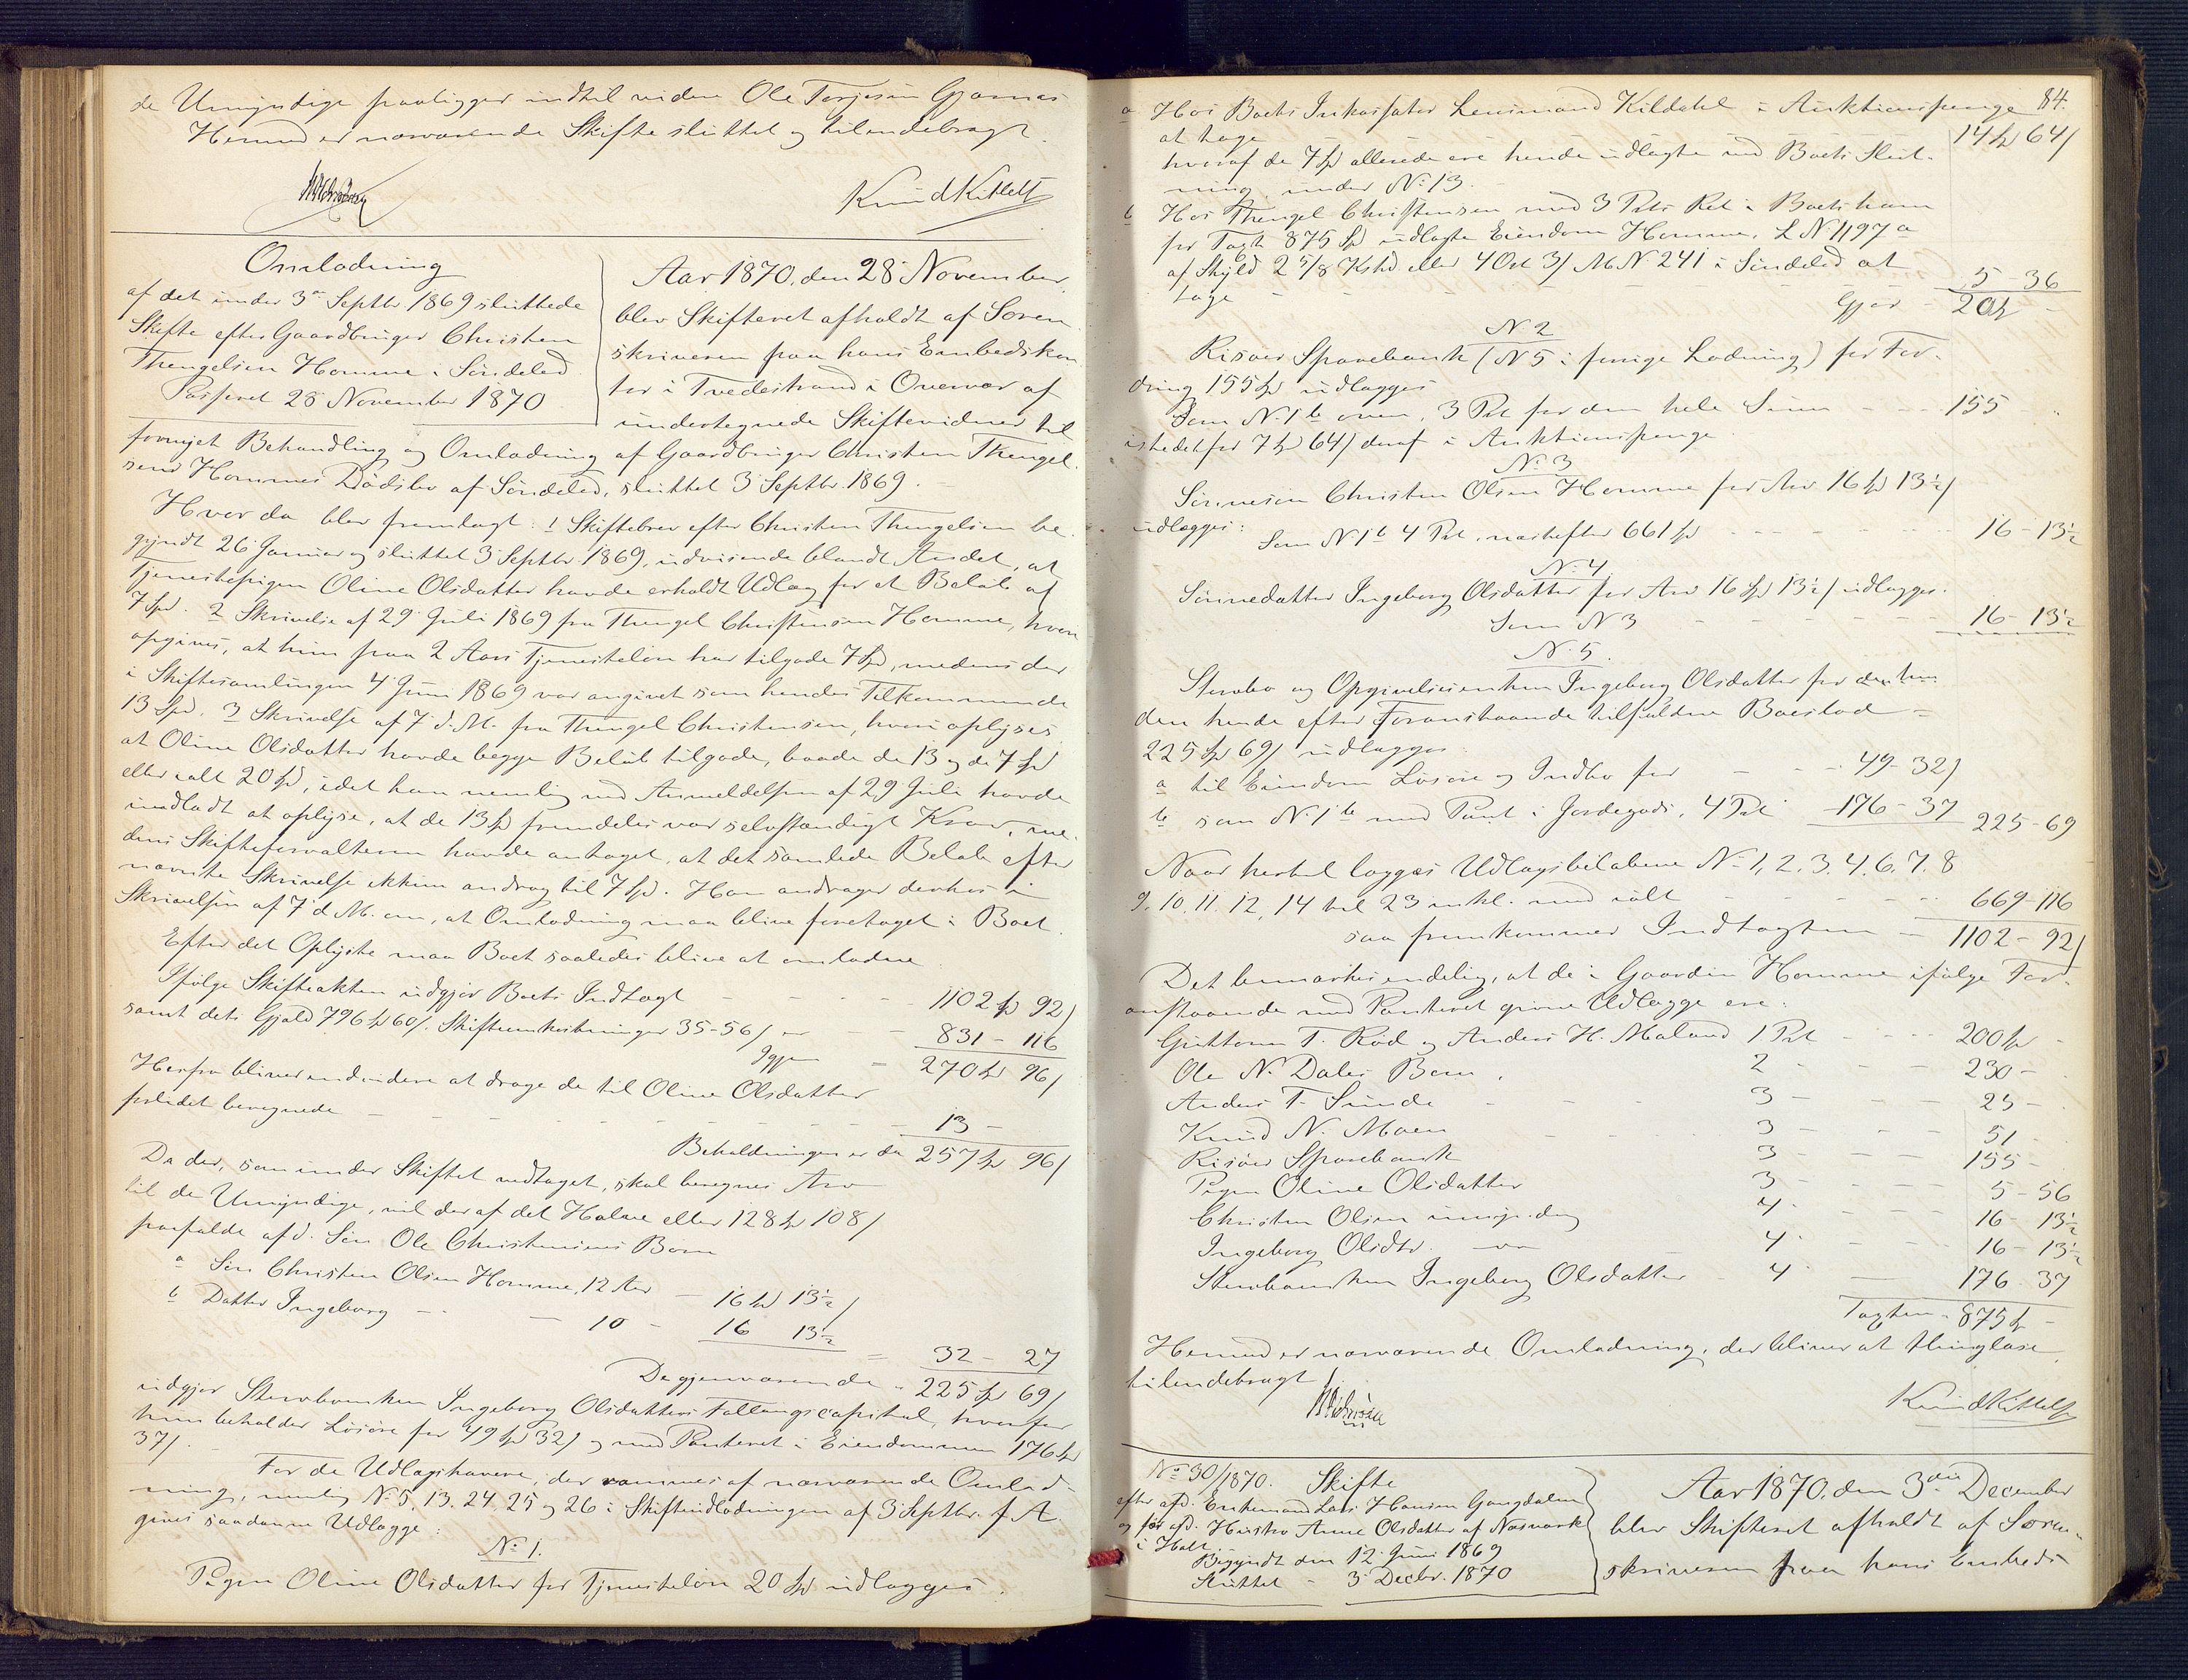 de Umyndige paaligger indtil videre Ole Terjesen Gjernes
Hermed er nærværende Skifte sluttet og tilendebragt.
Knud Kittelf
Omlodning
af det under 3de Septbr. 1869 sluttede
Skifte efter Gaardbruger Christen
Thengelsen Homme i Söndeled.
Passeret 28 November 1870
Aar 1870, den 28 November,
blev Skifteret afholdt af Soren-
skriveren paa hans Embedskon-
tor i Tvedestrand i Overvær af
undertegnede Skiftevidner til
fornyet Behandling og Omlodning af Gaardbruger Christen Thengel-
sens Hommes Dödsbo af Söndeled, sluttet 3 Septbr. 1869.
Hvor da blev fremlagt: 1 Skiftebrev efter Christen Thengelsen be-
gyndt 26 Januar og sluttet 3 Septbr. 1869, udvisende blandt Andet, at
Tjenestepigen Oline Olsdatter havde erholdt Udlæg for et Belöb af
7 Spd. 2 Skrivelse af 29 Juli 1869 fra Thengel Christensen Homme, hvori
opgives, at hun paa 2 Aars Tjenestelön har tilgode 7 Spd, medens der
i Skiftesamlingen 4 Juni 1869 var angivet som hendes Tilkommende
13 Spd. 3 Skrivelse af 7 d. M. fra Thengel Christensen, hvori oplyses
at Oline Olsdatter havde begge Belöb tilgode, baade de 13 og de 7 Spd
eller ialt 20 Spd, idet han nemlig ved Anmeldelsen af 29 Juli havde
undladt at oplyse, at de 13 Spd fremdeles var selvstændigt Krav, me-
dens Skifteforvalteren havde antaget, at det samlede Belöb efter
nævnte Skrivelse ikkun androg til 7 Spd. Han andrager derhos i
Skrivelsen af 7 d. M. om, at Omlodning maa blive foretaget i Boet.
Efter det Oplyste maa Boet saaledes blive at omlodne
Ifölge Skifteakten udgjör Boets Indtægt - - - 1102 Spd 92/
samt dets Gjæld 796 Spd 60/. Skifteomkostninger 35-56/ er - 831 - 116
Igjen - 270 Spd 96/
Herfra bliver endvidere at drage de til Oline Olsdatter
forlidet beregnede - - - 13 -
Beholdningen er da 257 Spd 96/
Da der, som under Skiftet vedtaget, skal beregnes Arv
til de Umyndige, vil der af det Halve eller 128 Spd 108/
paafalde afd. Sön Ole Christensens Börn
a Sön Christen Olsen Homme, 12 Aar - 16 Spd 13½/
b Datter Ingeborg - - 10 - 16 13½
= 32 - 27
De gjenværende - 225 Spd 69/
udgjör Stervboenken Ingeborg Olsdatters Fallangscapital, hvorfor
hun beholder Lösöre for 49 Spd 32/ og med Panteret i Eiendommen 176 Spd
37/.
For de Udlægshavere, der rammes af nærværende Omlod-
ning, nemlig No 5, 13. 24. 25 og 26 i Skifteudlodningen af 3 Septbr. f. A.
gives saadanne Udlægge:
No 1.
Pigen Oline Olsdatter for Tjenestelön 20 Spd udlægges.
84.
a Hos Boets Inkassator Lensmand Kildahl i Auktionspenge
at tage - 14 Spd 64/
hvoraf de 7 Spd allerede ere hende udlagte ved Boets Slut-
ning under No 13.
b Hos Thengel Christensen med 3 Pts Ret i Boets ham
for Taxt 875 Spd udlagte Eiendom Homme, L No 1197 a
af Skyld 2 5/8 Kshd. eller 4 Ort 3/ M. N 241 i Söndeled at
tage - - - 5 - 36
Gjör - 20 Spd -
No 2
Risöer Sparebank (No 5 i forrige Lodning) for For-
dring 155 Spd udlægges
Som No 1 b oven, 3 Pt for den hele Sum - - 155 "
istedetfor 7 Spd 64/ deraf i Auktionspenge
No 3
Sönnesön Christen Olsen Homme for Arv 16 Spd 13½/
udlægges:
Som No 1 b 4 Pt. næstefter 661 Spd - - - 16 - 13½
No 4.
Sönnedatter Ingeborg Olsdatter for Arv 16 Spd 13½/ udlægges.
Som No 3 - - - 16 - 13½
No 5.
Stervbo og Opgivelsesenken Ingeborg Olsdatter for den hen
den hende efter Foranstaaende tilfaldne Boeslod =
225 Spd 69/ udlægges
a til Eiendom Lösöre og Indbo for - - - 49 - 32/
b som No 1 b med Pant i Jordegods, 4 Pt - 176 - 37 225 - 69
Naar hertil lægges Udlægsbelöbene No 1, 2. 3. 4. 6. 7. 8
9. 10. 11. 12. 14 til 23 inkl. med ialt - - - 669 - 116
saa fremkommer Indtægten - 1102 - 92/
Det bemærkes endelig, at de i Gaarden Homme ifölge For-
anstaaende med Panteret givne Udlægge ere:
Guttorm T. Röd og Anders H. Maland 1 Pt - - 200 Spd -
Ole N. Dales Börn, 2 - - - 230 -
Anders T. Sunde - - - 3 - - - 25 -
Knud N. Moen - - - 3 - - - 51 -
Risöer Sparebank 3 - - - 155 -
Pigen Oline Olsdatter 3 - - - 5 - 56
Christen Olsen umyndig 4 - - - 16 - 13½
Ingeborg Olsdtr. - 4 - - - 16 - 13½
Stervboenken Ingeborg Olsdatter 4 - 176 - 37
Taxten - 875 Spd -
Hermed er nærværende Omlodning, der bliver at thinglæse,
tilendebragt
Knud Kittelf
No 30/1870. Skifte
efter afd. Enkemand Lars Hansen Gangdalen
og för afd. Hustro Anne Olsdatter af Næsværk
i Holt.
Begyndt den 12 Juni 1869
Sluttet - 3 Decbr. 1870
Aar 1870, den 3die December
blev Skifteret afholdt af Soren-
skriveren paa hans Embeds-